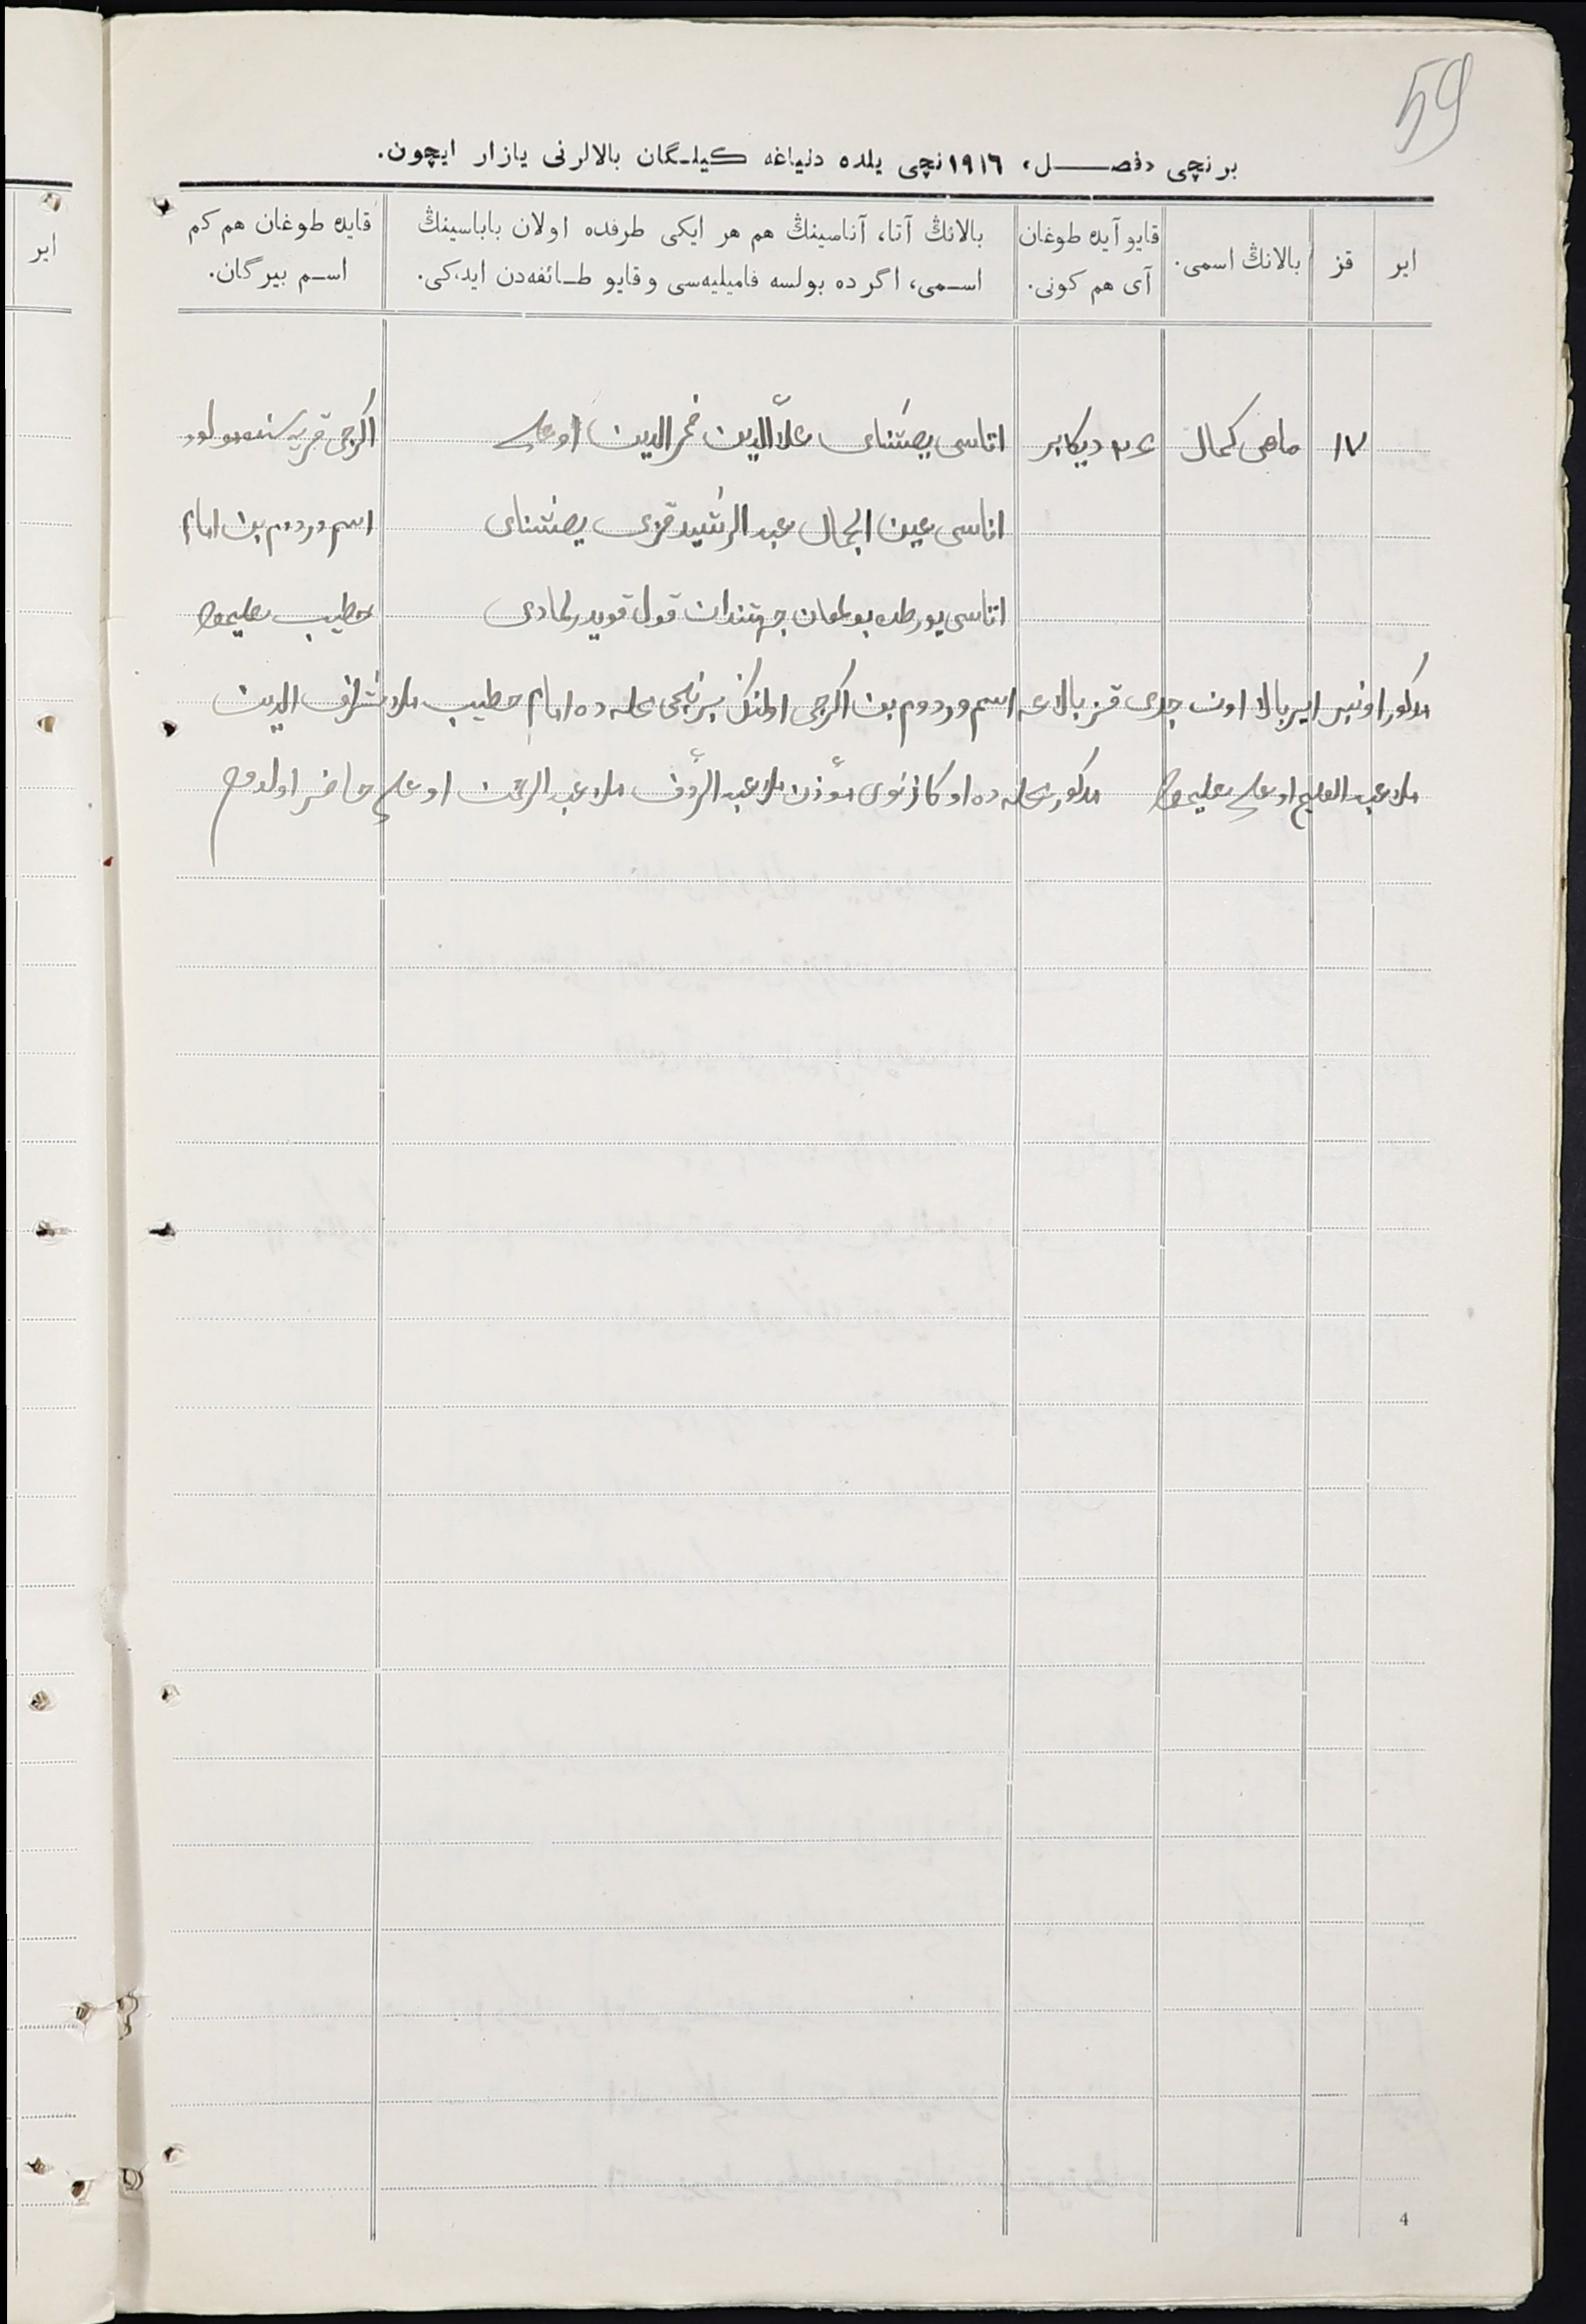 59
برنچی دفصل، ١٩١٦نچی یلده دنیاغه کیلـگان بالالرنی یازار ایچون.
ایر
قز
بالانڭ اسمی.
قایو آیده طوغان
آی هم کونی.
بالانڭ آتا، آناسینڭ هم هر ایکی طرفده اولان باباسینڭ
اسـمی، اگر ده بولسه فامیلیه‌سی و قایو طـائفه‌دن ایدکی.
قایده طوغان هم کم
اسـم بیرگان.
ایر
١٧
ماهی کمال
٢٤ دیکابر
اتاسی یصشنای علاّالدین فخرالدین اوغلی
اکرجی قریه سنده مولود
اناسی عین الجمال عبد الرشید قزی یصشنای
اسم وردوم بن امام
اتاسی یورطده بولمغان جهتندان قول قویدرلمادی
خطیب علیموف
مذکور اونبر ایر بالا اون جدی قز بالاغه اسم وردوم بن اکرجی اولنڭ برنجی محله ده امام خطیب ملا شرف الدین
ملا عبد العلیم اوغلی علیموف مذکور محله ده او کازنوی مؤذن ملا عبد الرؤف ملا عبد الرحمن اوغلی حاضر اولدوم
4